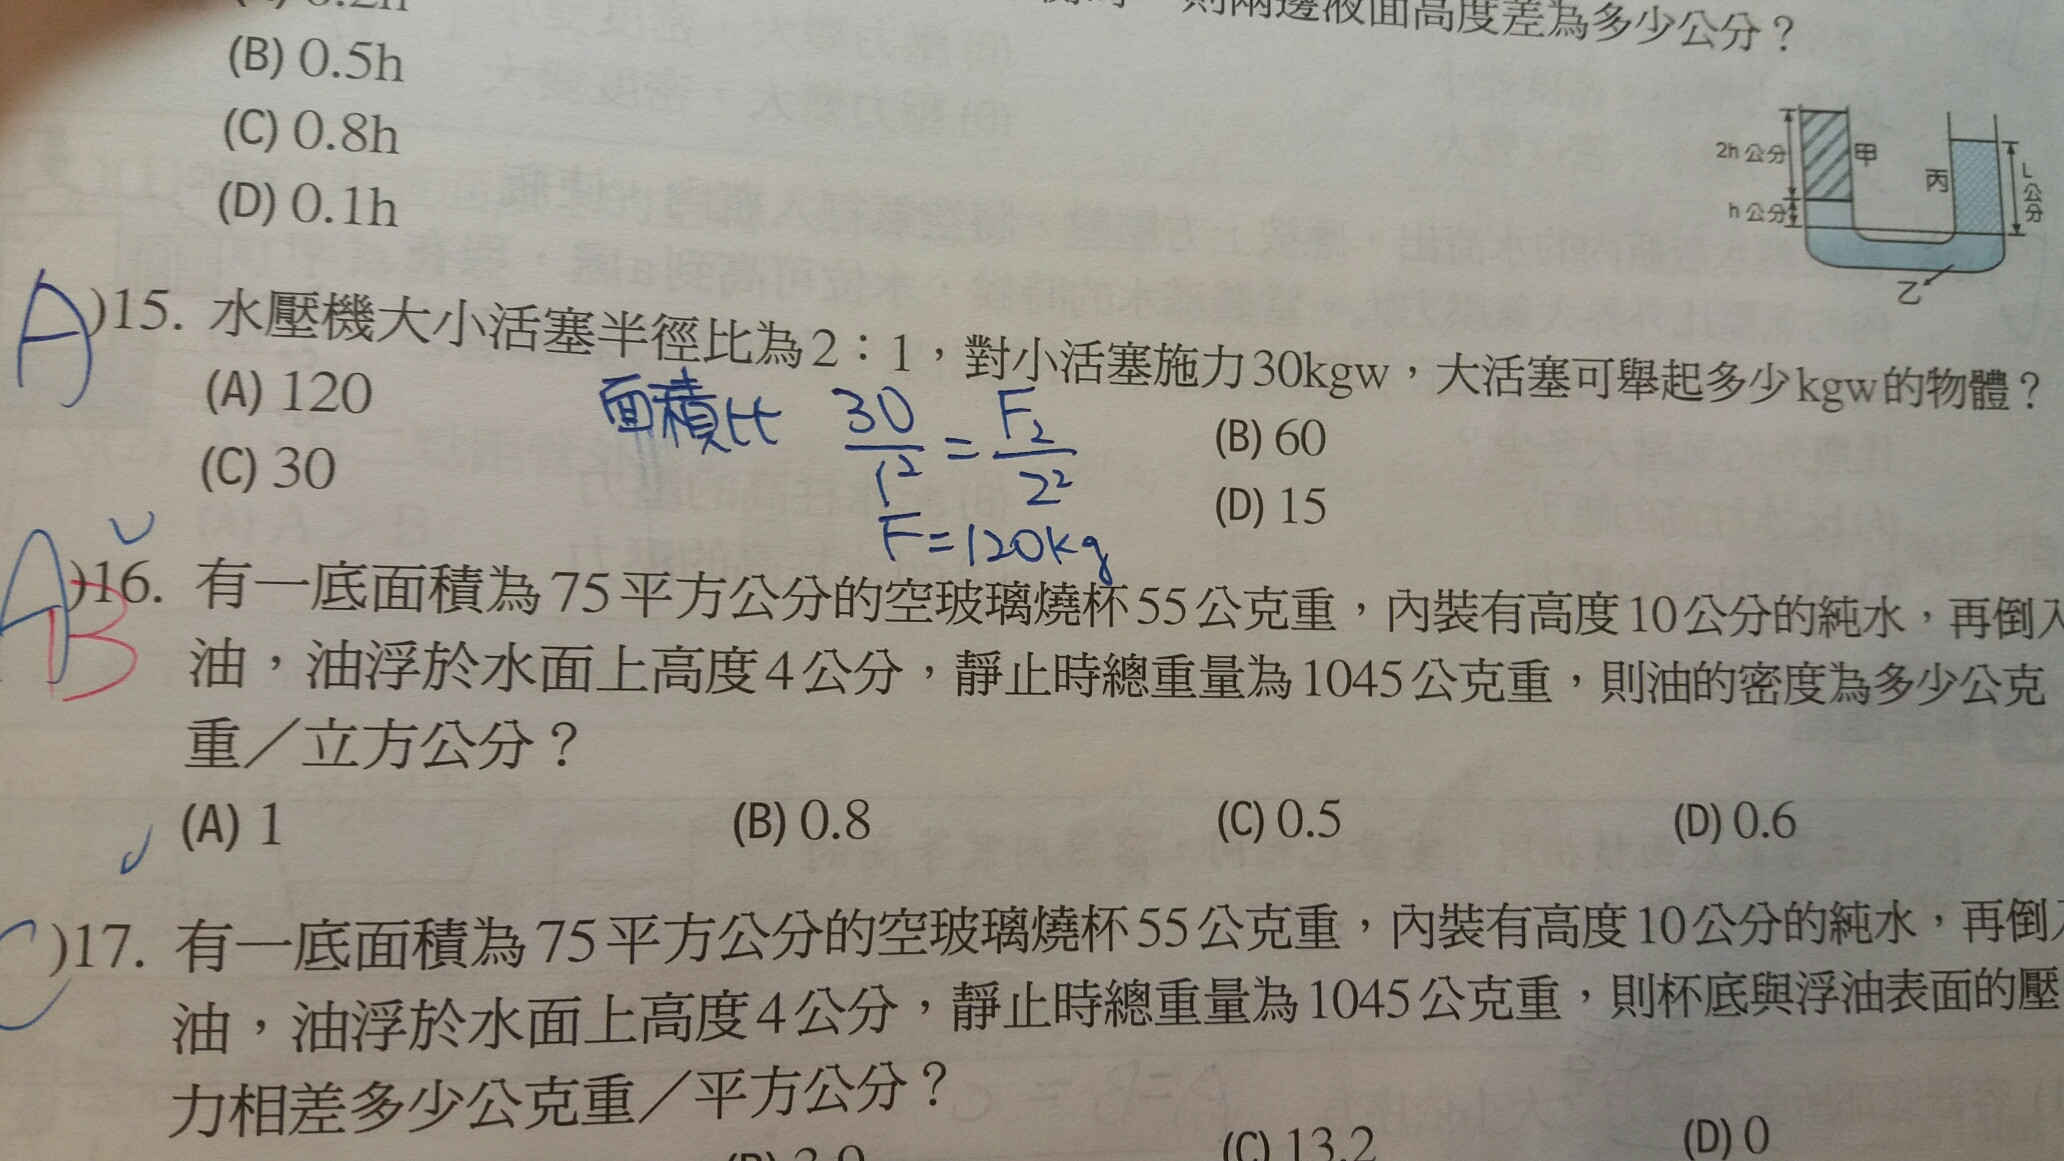 則兩邊液面高度差為多少公分？
(B) 0.5h
(C) 0.8h
(D) 0.1h
2h 公分
甲
丙
L公分
h 公分
乙
A
)15. 水壓機大小活塞半徑比為2：1，對小活塞施力30kgw，大活塞可舉起多少kgw的物體？
(A) 120
(B) 60
(C) 30
(D) 15
面積比 30/1² = F₂/2²
F=120kg
A
B
)16. 有一底面積為75平方公分的空玻璃燒杯55公克重，內裝有高度10公分的純水，再倒入
油，油浮於水面上高度4公分，靜止時總重量為1045公克重，則油的密度為多少公克
重／立方公分？
(A) 1
(B) 0.8
(C) 0.5
(D) 0.6
C
)17. 有一底面積為75平方公分的空玻璃燒杯55公克重，內裝有高度10公分的純水，再倒入
油，油浮於水面上高度4公分，靜止時總重量為1045公克重，則杯底與浮油表面的壓
力相差多少公克重／平方公分？
(C) 13.2
(D) 0